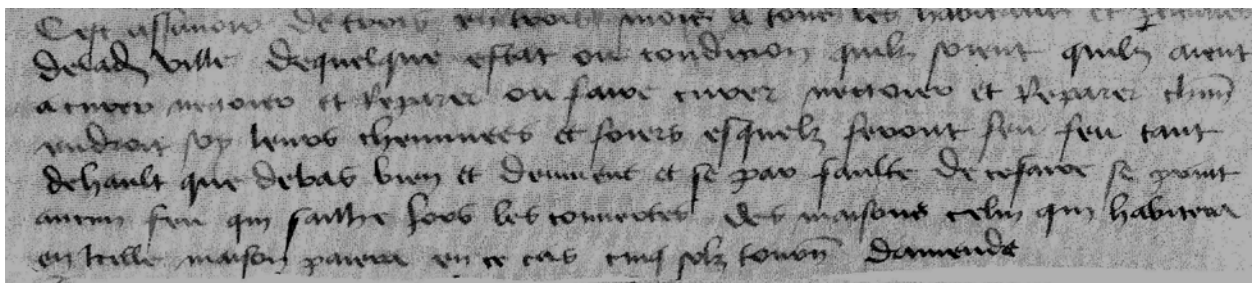 Cest assavoir de trois en trois mois a tous les habitans et
de lad ville de quelque estat ou condition quilz soient quilz aient
a curer nectoier et Reparer ou faire curer nectoier et Reparer chun
endroit soy leurs chemynees et fouers esquelz feront feu feu tant
dehault que debas bien et deuement et se par faulte de ce faire se prent
aucun feu qui saille hors les couvertes des maisons celui qui habitera
en icelle maison paiera en ce cas cinq solz tourn damende